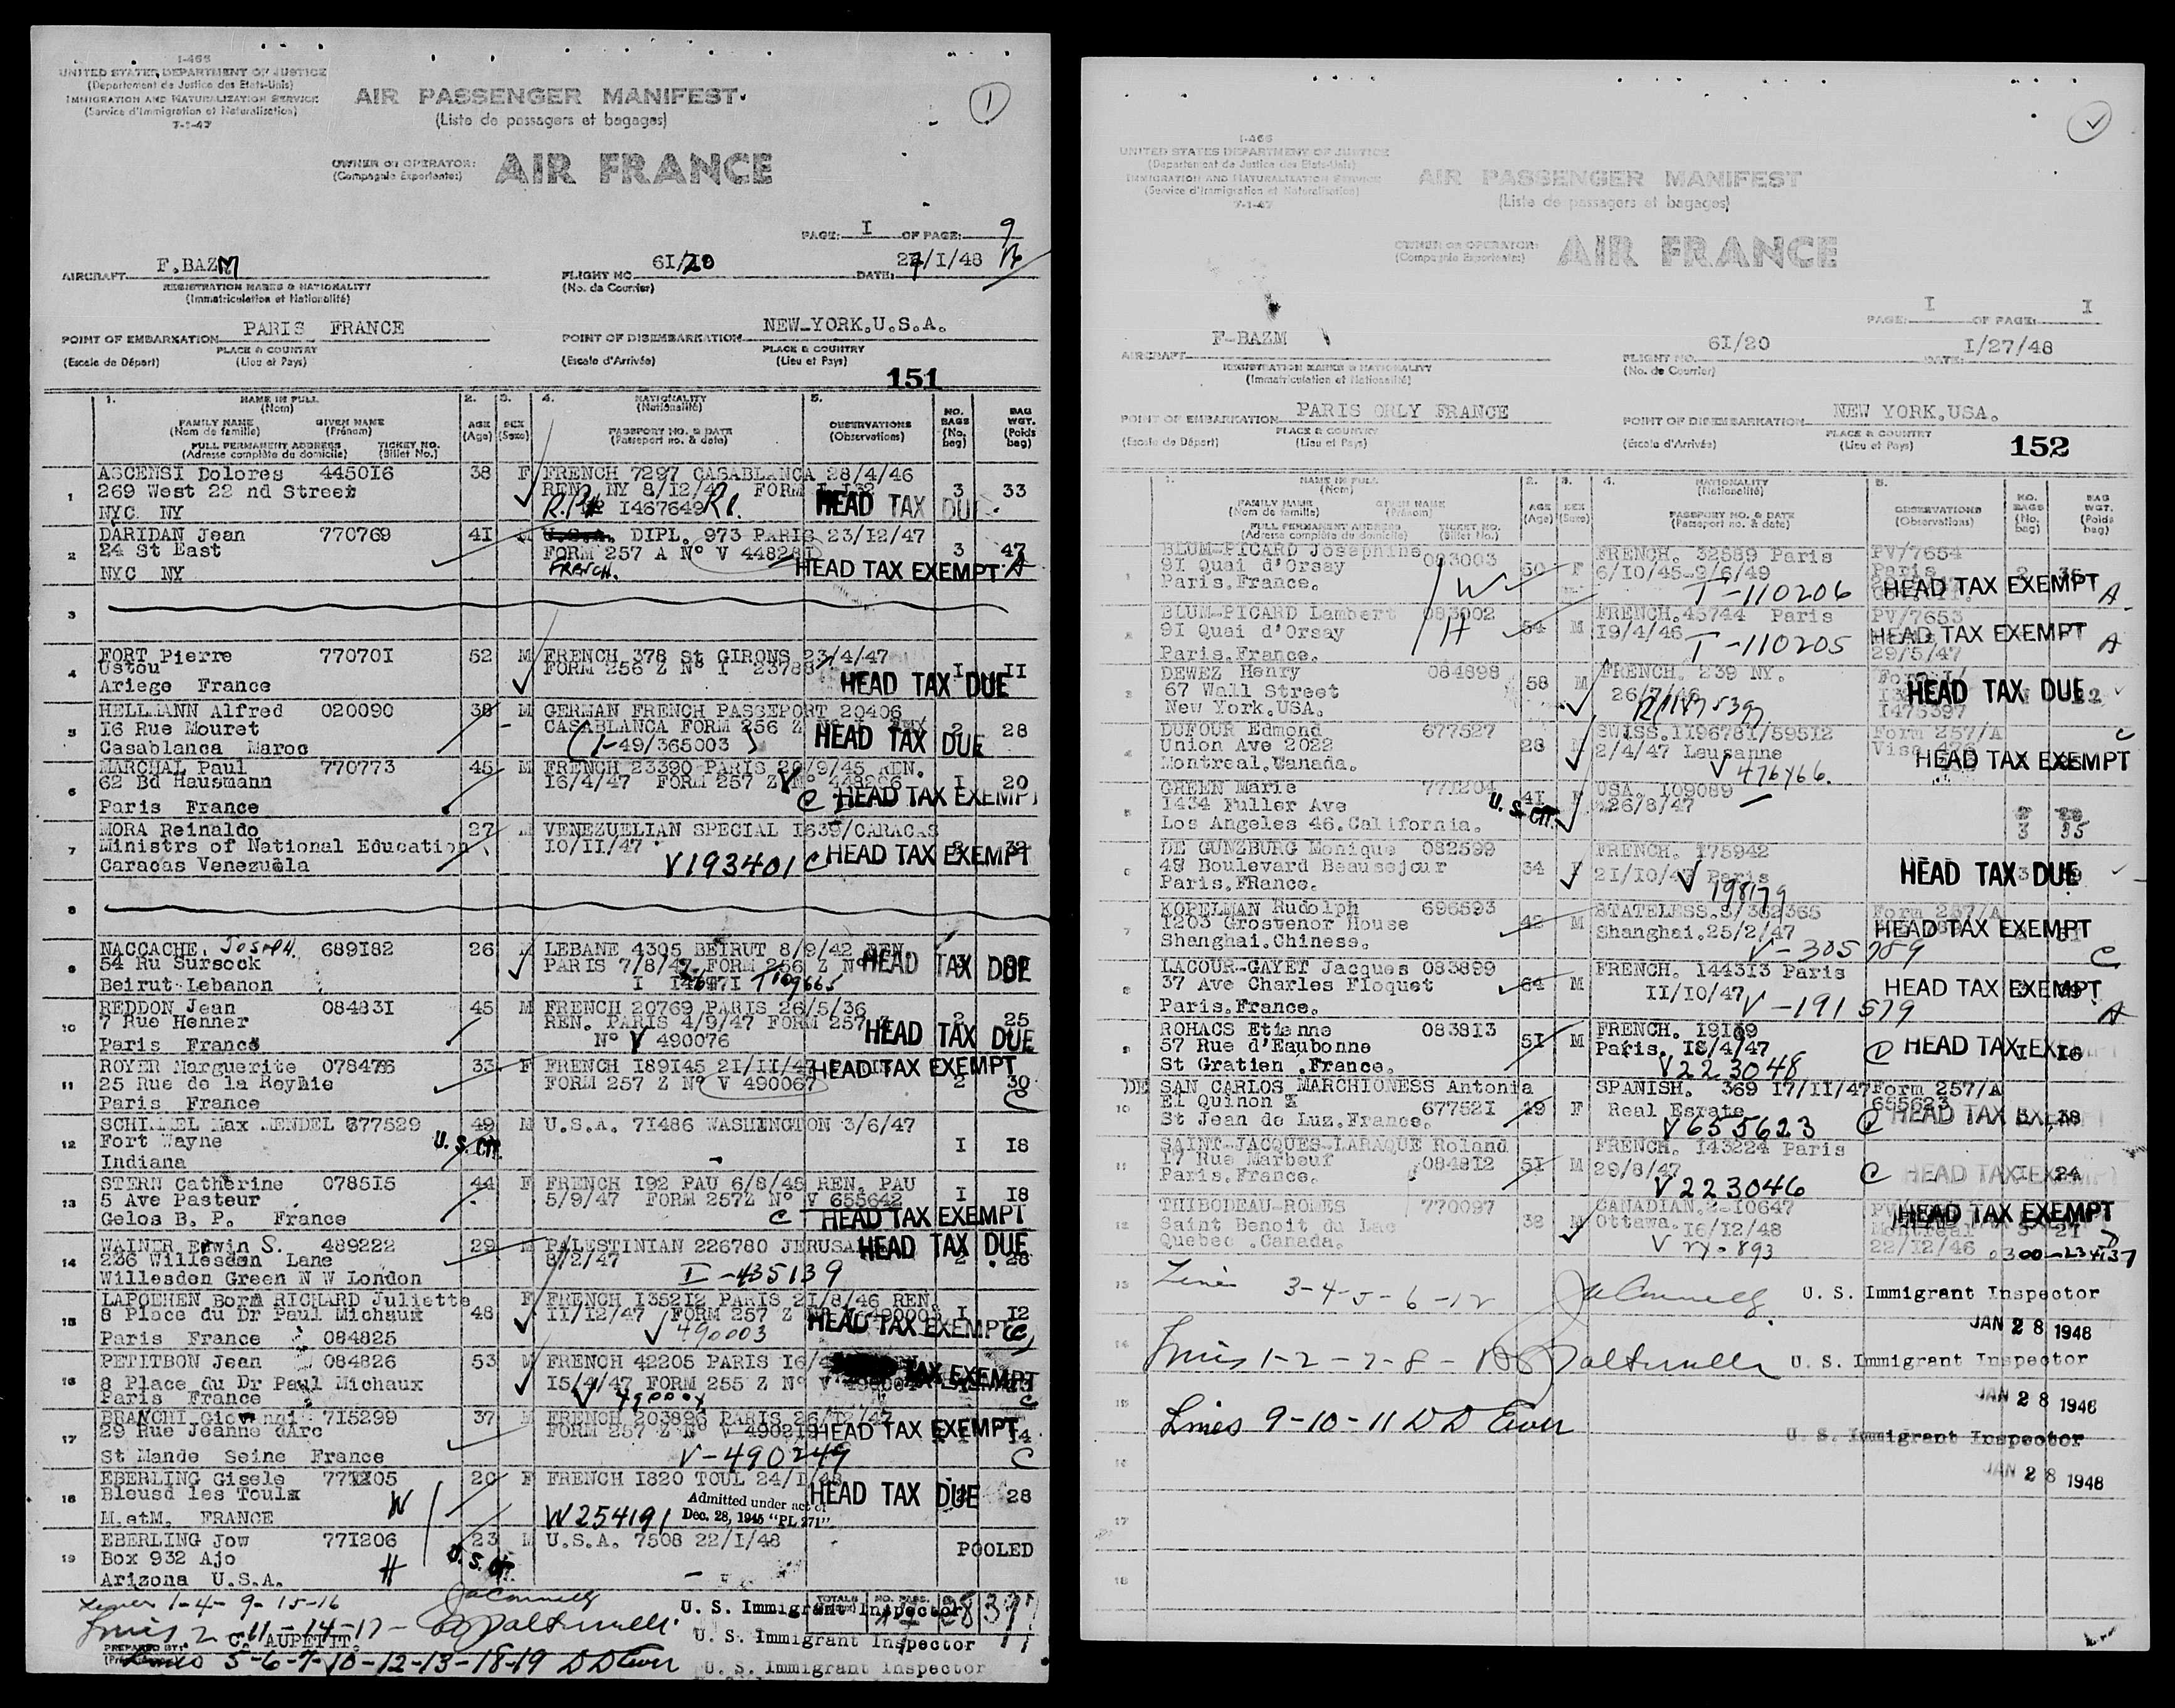 I-466
UNITED STATES DEPARTMENT OF JUSTICE
(Departement de Justice des Etats-Unis)
IMMIGRATION AND NATURALIZATION SERVICE
(Service d'Immigration et Naturalisation)
7-1-47
AIR PASSENGER MANIFEST
(Liste de passagers et bagages)
1
OWNER OR OPERATOR:
(Compagnie Exportante:)
AIR FRANCE
PAGE: I OF PAGE: 9
AIRCRAFT F.BAZM
REGISTRATION MARKS & NATIONALITY
(Immatriculation et Nationalité)
FLIGHT NO. 6I/20
(No. de Courrier)
DATE: 27/I/48
POINT OF EMBARKATION PARIS FRANCE
PLACE & COUNTRY
(Escale de Départ) (Lieu et Pays)
POINT OF DISEMBARKATION NEW-YORK.U.S.A.
PLACE & COUNTRY
(Escale d'Arrivée) (Lieu et Pays)
151
1. NAME IN FULL
(Nom)
FAMILY NAME GIVEN NAME
(Nom de famille) (Prénom)
FULL PERMANENT ADDRESS TICKET NO.
(Adresse complète du domicile) (Billet No.)
2. AGE (Age)
3. SEX (Sexe)
4. NATIONALITY
(Nationalité)
PASSPORT NO. & DATE
(Passeport no. & date)
5. OBSERVATIONS
(Observations)
NO. BAGS (No. bag)
BAG WGT. (Poids bag)
1 ASCENSI Dolores 4450I6 38 F FRENCH 7297 CASABLANCA 28/4/46
269 West 22 nd Street REN. NY 8/12/47 FORM I 132 3 33
NYC NY I467649 HEAD TAX DUE
2 DARIDAN Jean 770769 4I DIPL. 973 PARIS 23/I2/47
24 St East FORM 257 A N° V 44828I 3 47
NYC NY FRENCH. HEAD TAX EXEMPT A
3
4 FORT Pierre 77070I 52 M FRENCH 378 St GIRONS 23/4/47
Ustou FORM 256 Z N° I 23788 I II
Ariege France HEAD TAX DUE
5 HELLMANN Alfred 020090 38 M GERMAN FRENCH PASSEPORT 20406
I6 Rue Mouret CASABLANCA FORM 256 Z 2 28
Casablanca Maroc I-49/365003 HEAD TAX DUE
6 MARCHAL Paul 770773 45 M FRENCH 23390 PARIS 20/9/45 REN.
62 Bd Hausmann I6/4/47 FORM 257 Z V N° 448206 I 20
Paris France C HEAD TAX EXEMPT
7 MORA Reinaldo 27 M VENEZUELIAN SPECIAL I639/CARACAS
Ministrs of National Education IO/II/47
Caracas Venezuela V193401 C HEAD TAX EXEMPT
8
9 NACCACHE. Joseph 689I82 26 M LEBANE 4305 BEIRUT 8/9/42 REN.
54 Ru Sursock PARIS 7/8/47 FORM 256 Z N° HEAD TAX DUE
Beirut Lebanon T109665
10 REDDON Jean 08483I 45 M FRENCH 20769 PARIS 26/5/36
7 Rue Henner REN. PARIS 4/9/47 FORM 257 Z 2 25
Paris France N° V 490076 HEAD TAX DUE
11 ROYER Marguerite 078476 33 F FRENCH I89I45 2I/II/47 HEAD TAX EXEMPT
25 Rue de la Reynie FORM 257 Z N° V 490067 2 30
Paris France C
12 SCHIMMEL Max MENDEL 677529 49 M U.S.A. 7I486 WASHINGTON 3/6/47
Fort Wayne U. S. CIT. I I8
Indiana
13 STERN Catherine 0785I5 44 F FRENCH I92 PAU 6/8/45 REN. PAU
5 Ave Pasteur 5/9/47 FORM 257Z N° V 655642 I I8
Gelos B. P. France C HEAD TAX EXEMPT
14 WAINER Edwin S. 489222 29 M PALESTINIAN 226780 JERUSA HEAD TAX DUE
226 Willesden Lane 8/2/47 2 26
Willesden Green N W London I-435139
15 LAPODHEN Born RICHARD Juliette F FRENCH I352I2 PARIS 2I/8/46 REN
8 Place du Dr Paul Michaux 48 II/I2/47 FORM 257 Z I I2
Paris France 084825 V 490003 HEAD TAX EXEMPT C
16 PETITBON Jean 084826 53 M FRENCH 42205 PARIS I6/4
8 Place du Dr Paul Michaux I5/4/47 FORM 255 Z N° V TAX EXEMPT
Paris France C
17 BRANCHI Giovanni 7I5299 37 M FRENCH 203896 PARIS 26/I2/47
29 Rue Jeanne dArc FORM 257 Z N° V 490249 HEAD TAX EXEMPT I I4
St Mande Seine France V-490249 C
18 EBERLING Gisele 77I205 20 F FRENCH I820 TOUL 24/I/48
Bleusd les Toul HEAD TAX DUE 28
M.etM. FRANCE W W254191 Admitted under act of
Dec. 28, 1945 "PL 271"
19 EBERLING Jow 77I206 23 M U.S.A. 7508 22/I/48
Box 932 Ajo U. S. CIT. POOLED
Arizona U.S.A. H
Lines 1-4-9-15-16 U. S. Immigrant Inspector
TOTALS NO. PASS.
Lines 2-11-14-17- U. S. Immigrant Inspector
PREPARED BY: C. AUPETIT.
Lines 5-6-7-10-12-13-18-19 D D Ewer U. S. Immigrant Inspector
I-466
UNITED STATES DEPARTMENT OF JUSTICE
(Departement de Justice des Etats-Unis)
IMMIGRATION AND NATURALIZATION SERVICE
(Service d'Immigration et Naturalisation)
7-1-47
AIR PASSENGER MANIFEST
(Liste de passagers et bagages)
OWNER OR OPERATOR:
(Compagnie Exportante:)
AIR FRANCE
PAGE: I OF PAGE: I
AIRCRAFT F-BAZM
REGISTRATION MARKS & NATIONALITY
(Immatriculation et Nationalité)
FLIGHT NO. 6I/20
(No. de Courrier)
DATE: I/27/48
POINT OF EMBARKATION PARIS ORLY FRANCE
PLACE & COUNTRY
(Escale de Départ) (Lieu et Pays)
POINT OF DISEMBARKATION NEW YORK.USA.
PLACE & COUNTRY
(Escale d'Arrivée) (Lieu et Pays)
152
1. NAME IN FULL
(Nom)
FAMILY NAME GIVEN NAME
(Nom de famille) (Prénom)
FULL PERMANENT ADDRESS TICKET NO.
(Adresse complète du domicile) (Billet No.)
2. AGE (Age)
3. SEX (Sexe)
4. NATIONALITY
(Nationalité)
PASSPORT NO. & DATE
(Passeport no. & date)
5. OBSERVATIONS
(Observations)
NO. BAGS (No. bag)
BAG WGT. (Poids bag)
1 BLUM-PICARD Josephine 083003 50 F FRENCH. 32589 Paris PV/7654
9I Quai d'Orsay W 6/IO/45-9/6/49 Paris
Paris.France. T-110206 HEAD TAX EXEMPT A
2 BLUM-PICARD Lambert 083002 54 M FRENCH.45744 Paris PV/7653
9I Quai d'Orsay H I9/4/46 HEAD TAX EXEMPT
Paris.France. T-110205 29/5/47 A
3 DEWEZ Henry 084898 58 M FRENCH. 239 NY.
67 Wall Street 26/7/46 HEAD TAX DUE
New York.USA. I475397
4 DUFOUR Edmond 677527 28 M SWISS.II9678I/595I2 Form 257/A
Union Ave 2022 2/4/47 Lausanne C
Montreal.Canada. V 476466. HEAD TAX EXEMPT
5 GREEN Marie 77I204 4I F USA. I09089
I434 Fuller Ave U. S. CIT. 26/8/47
Los Angeles 46.California. 3 35
6 DE GUNZBURG Monique 082599 34 F FRENCH. I75942
48 Boulevard Beausejour 2I/IO/47 Paris HEAD TAX DUE
Paris.FRance. V 198179
7 KOPELMAN Rudolph 696593 42 M STATELESS.S/362365 Form 257/A
I203 Grostenor House Shanghai.25/2/47 HEAD TAX EXEMPT
Shanghai.Chinese. V-305789 C
8 LACOUR-GAYET Jacques 083899 64 M FRENCH. I443I3 Paris
37 Ave Charles Floquet II/IO/47 HEAD TAX EXEMPT
Paris.France. V-191579 A
9 ROHACS Etienne 0838I3 5I M FRENCH. I9I39
57 Rue d'Eaubonne Paris. I8/4/47 C HEAD TAX EXEMPT I I6
St Gratien .France. V223048
10 DE SAN CARLOS MARCHIONESS Antonia SPANISH. 369 I7/II/47 Form 257/A
El Quinon 67752I 49 F Real Esrate 655623
St Jean de Luz.France. V655623 C HEAD TAX EXEMPT 38
11 SAINT-JACQUES-LARAQUE Roland FRENCH. I43224 Paris
I7 Rue Marbeuf 0848I2 5I M 29/8/47 C HEAD TAX EXEMPT I 24
Paris.France. V223046
12 THIBODEAU-ROMES 770097 38 M CANADIAN.2-I0647 HEAD TAX EXEMPT
Saint Benoit du Lac Ottawa. I6/I2/48 Montreal 2I
Quebec .Canada. 22/I2/46 0300-234137
13 Lines 3-4-5-6-12 U. S. Immigrant Inspector
JAN 28 1948
14 Lines 1-2-7-8- U. S. Immigrant Inspector
JAN 28 1948
15 Lines 9-10-11 D D Ewer U. S. Immigrant Inspector
16 JAN 28 1948
17
18